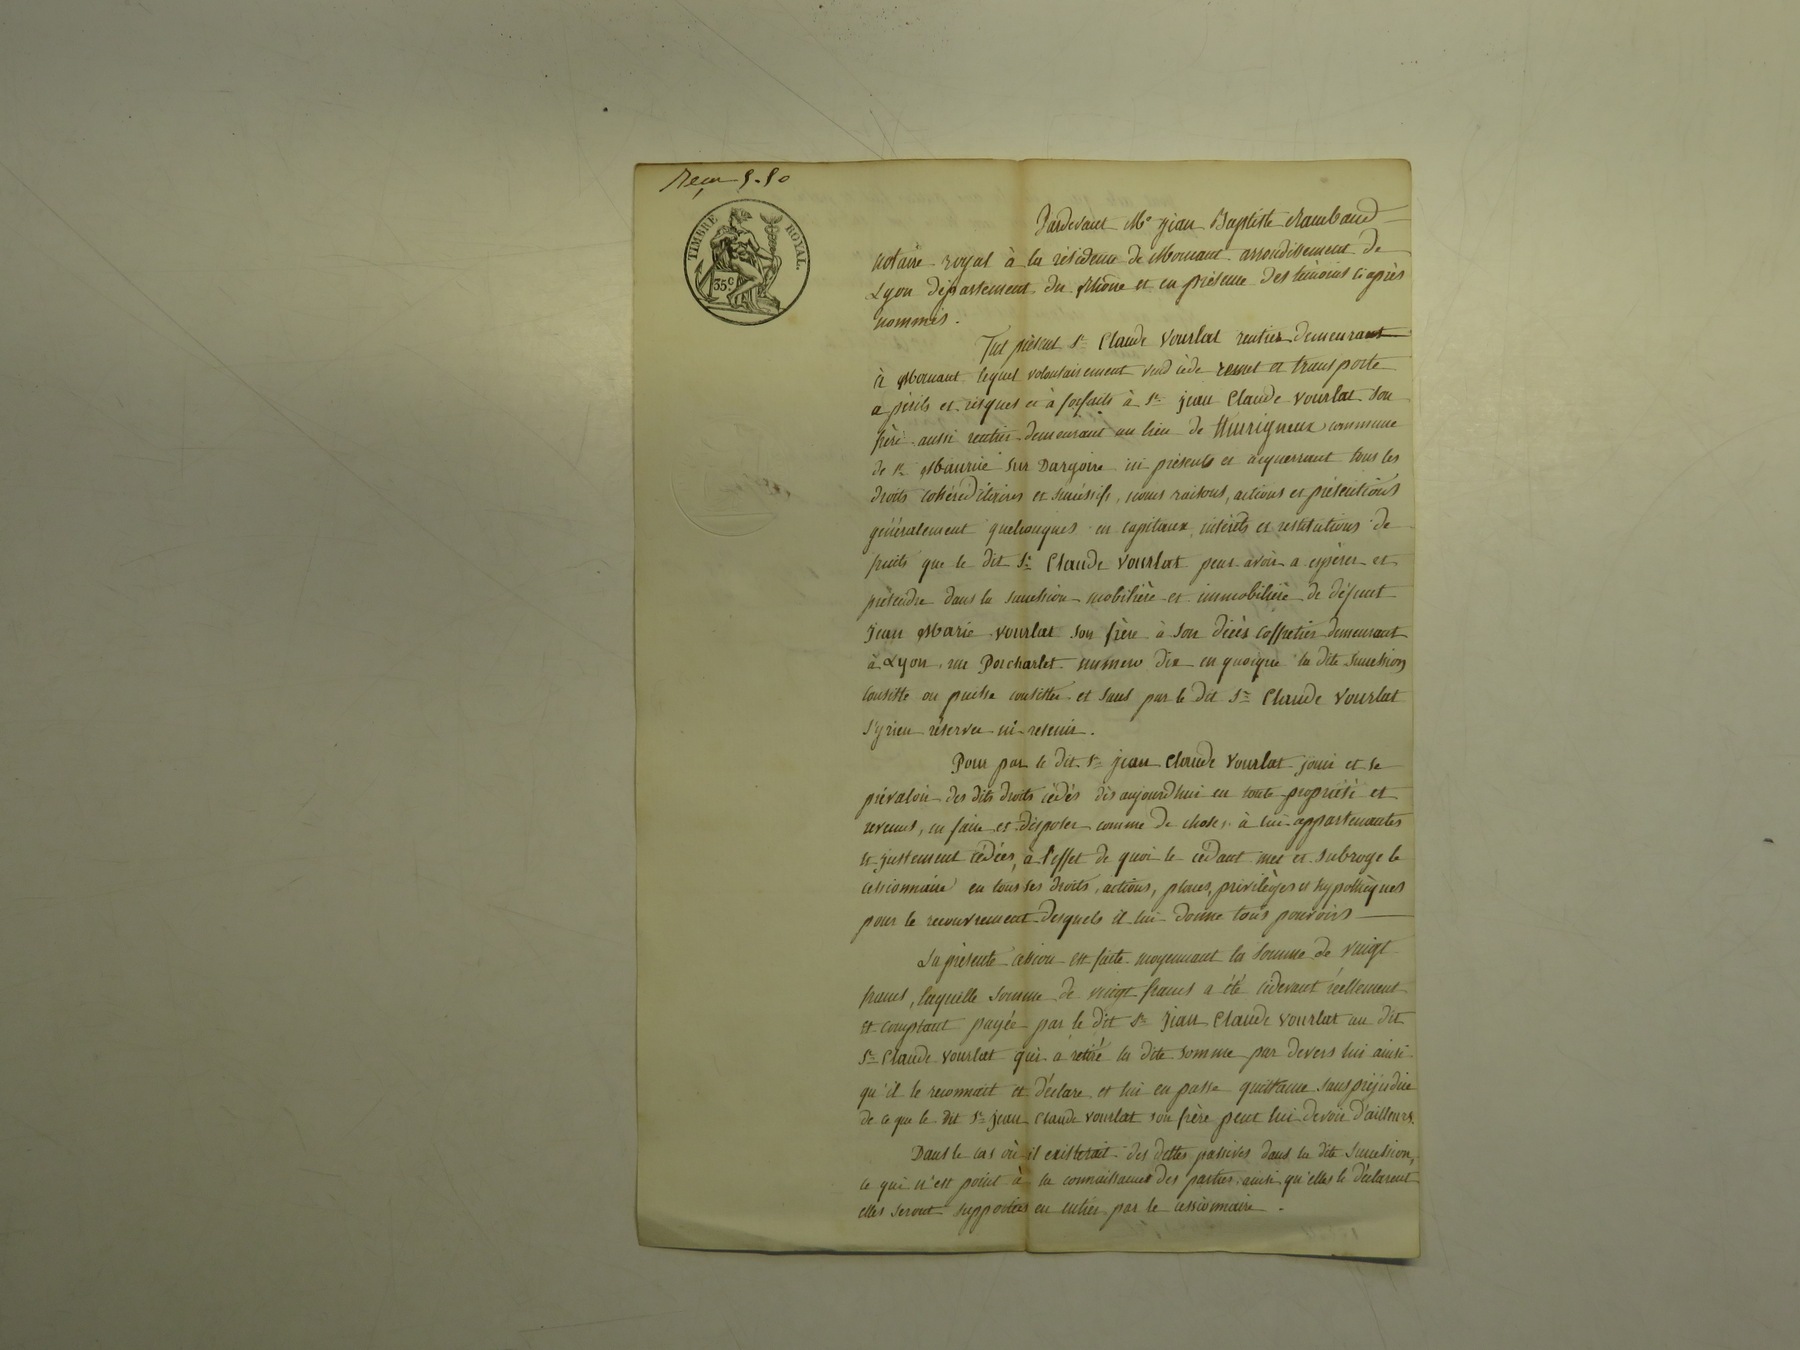 Reçu 5.50
TIMBRE ROYAL.
35c
Pardevant Me jean Baptiste Rambaud
notaire royal à la résidence de Mornant arrondissement de
Lyon département du Rhône et en présence des témoins ci après
nommés.
Fut présent Sr Claude Vourlat rentier demeurant
à Mornant lequel volontairement vend cède remet et transporte
a périls et risques et à forfaits à Sr jean Claude Vourlat son
frère aussi rentier demeurant au lieu de Murigneux commune
de St Maurice sur Dargoire ici présents et acquerrant tous les
droits cohéréditaires et sucéssifs, noms raisons, actions et prétentions
généralement quelconques en capitaux intérêts et restitutions de
fruits que le dit Sr Claude Vourlat peut avoir a espérer et
prétendre dans la succession mobilière et immobilière de défunt
jean Marie Vourlat son frère à son décès coffretier demeurant
à Lyon rue Porcharlet numero dix en quoique la dite succession
consiste ou puisse consister et sans par le dit Sr Claude Vourlat
s'y rien réserver ni retenir.
Pour par le dit Sr jean Claude Vourlat jouir et se
prévaloir des dits droits cédés dès aujourd'hui en toute propriété et
revenus, en faire et disposer comme de choses à lui appartenantes
et justement cédées, à l'effet de quoi le cédant met et subroge le
cessionnaire en tous ses droits, actions, places, privilèges et hypothèques
pour le recouvrement desquels il lui donne tous pouvoirs
La présente cession est faite moyennant la somme de vingt
francs, laquelle somme de vingt francs a été cidevant réellement
et comptant payée par le dit Sr jean Claude Vourlat au dit
Sr Claude Vourlat qui a retiré la dite somme par devers lui ainsi
qu'il le reconnait et déclare et lui en passe quittance sans préjudice
de ce que le dit Sr jean Claude Vourlat son frère peut lui devoir d'ailleurs.
Dans le cas où il existerait des dettes passives dans la dite succession,
ce qui n'est point à la connaissance des parties ainsi qu'elles le déclarent
elles seront supportées en entier par le cessionnaire.